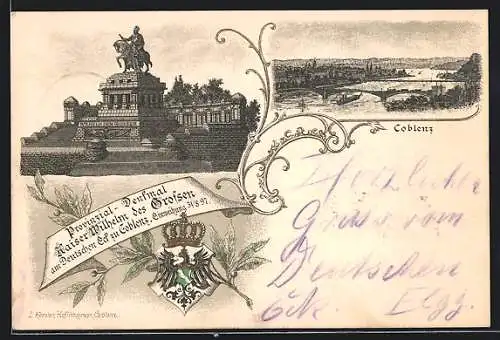 Coblenz
Provinzial-Denkmal
Kaiser Wilhelm des Grossen
am Deutschen Eck zu Coblenz. Einweihung 31/8 97.
Herzliche
Gruss vom
Deutschen
Eck.
Hoflithograph, Coblenz.